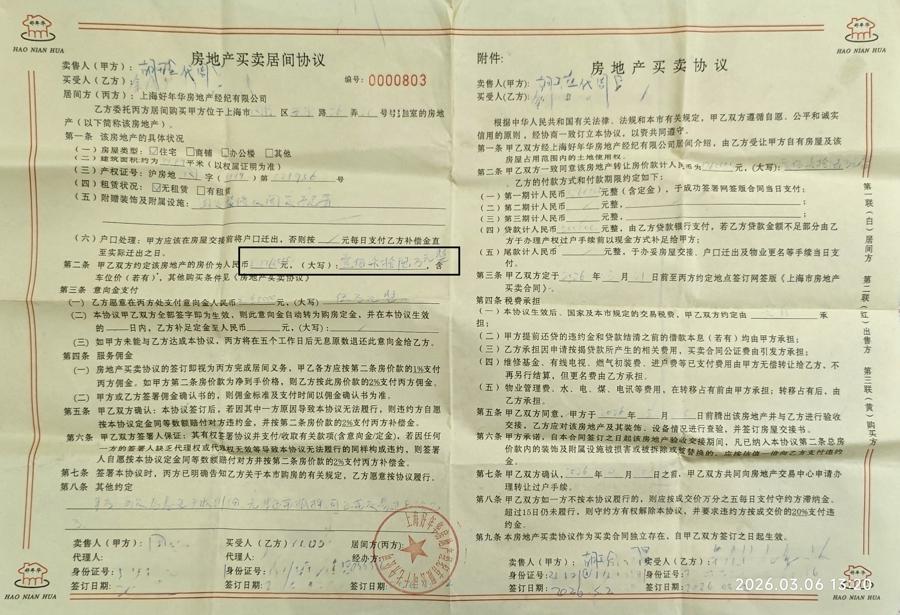 好年华
HAO NIAN HUA
房地产买卖居间协议
编号：0000803
卖售人（甲方）：
买受人（乙方）：
居间方（丙方）：上海好年华房地产经纪有限公司
乙方委托丙方居间购买甲方位于上海市 区 路 弄 号 室的房地
产（以下简称该房地产）。
第一条 该房地产的具体状况
（一）房屋类型：住宅 商铺 办公楼 其他
（二）建筑面积约为 平米（以权属证明为准）
（三）产权证号：沪房地 字（ ）第 号
（四）租赁状况：无租赁 有租赁
（五）附赠装饰及附属设施：
（六）户口处理：甲方应该在房屋交接前将户口迁出，否则按 元每日支付乙方补偿金直
至实际迁出之日。
第二条 甲乙双方约定该房地产的房价为人民币 元，（大写）： ，含
车位价（若有），其他购买条件见《房地产买卖协议》
第三条 意向金支付
（一）乙方愿意在丙方处支付意向金人民币 元，（大写）
（二）本协议甲乙双方全部签字即为生效，则此意向金自动转为购房定金，并在本协议生效
的 日内，乙方补足定金至人民币 元，（大写）：
（三）如甲方未能与乙方达成本协议，丙方将在五个工作日后无息原数退还此意向金给乙方。
第四条 服务佣金
（一）房地产买卖协议的签订即视为丙方完成居间义务，甲乙各方应按第二条房价款的1%支付
丙方佣金。如甲方第二条房价款为净到手价格，则乙方按此房价款的2%支付丙方佣金。
（二）甲方或乙方签署佣金确认书的，则佣金标准及支付时间以佣金确认书为准。
第五条 甲乙双方确认：本协议签订后，若因其中一方原因导致本协议无法履行，则违约方自愿
按本协议约定金同等数额赔付对方违约金，并按第二条房价款的2%支付丙方补偿金。
第六条 甲乙双方签署人保证：其有权签署协议并支付/收取有关款项（含意向金/定金），若因任何
一方的签署人缺乏代理权或代理权无效等导致本协议无法履行的同样构成违约，则签署
人自愿按本协议定金同等数额赔付对方并按第二条房价款的2%支付丙方补偿金。
第七条 签署本协议时，丙方已明确告知乙方关于本市购房的有关规定，乙方愿意按协议履行。
第八条 其他约定
卖售人（甲方）： 买受人（乙方） 居间方（丙方）：
代理人： 代理人： 经办方：
身份证号： 身份证号：
签订日期： 签订日期： 签订日期：
附件：
房地产买卖协议
卖售人（甲方）：
买受人（乙方）：
根据中华人民共和国有关法律、法规和本市有关规定，甲乙双方遵循自愿、公平和诚实
信用的原则，经协商一致订立本协议，以资共同遵守。
第一条 甲乙双方经上海好年华房地产经纪有限公司居间介绍，由乙方受让甲方自有房屋及该
房屋占用范围内的土地使用权。
第二条 甲乙双方一致同意该房地产转让房价款计人民币 元，（大写）：
乙方的付款方式和付款期限约定如下：
（一）第一期计人民币 元整（含定金），于成功签署网签版合同当日支付；
（二）第二期计人民币 元整，
（三）第三期计人民币 元整，
（四）贷款计人民币 元整，由乙方通过银行贷款支付，若乙方贷款金额不足部分由乙
方于办理产权过户手续前以现金方式补足给甲方；
（五）尾款计人民币 元整，于办妥房屋交接、户口迁出及物业更名等手续当日支
付。
第三条 甲乙双方定于2026年 月 日前至丙方约定地点签订网签版《上海市房地产
买卖合同》。
第四条 税费承担
（一）本协议生效后、国家及本市规定的交易税费，甲乙双方约定由 承
担：
（二）甲方提前还贷的违约金和贷款结清之前的借款本息（若有）均由甲方承担；
（三）乙方承担因申请按揭贷款所产生的相关费用，买卖合同公证费由引发方承担；
（四）维修基金、有线电视、燃气初装费、进户费等已支付费用由甲方无偿转让给乙方，不
再另行结算，但更名费由乙方承担。
（五）物业管理费、水、电、煤、电讯等费用，在转移占有前由甲方承担；转移占有后，由
乙方承担。
第五条 甲乙双方同意，甲方于2026年 月 日前腾出该房地产并与乙方进行验收
交接，乙方应对该房地产及其装饰、设备情况进行查验，并签订房屋交接书。
第六条 甲方承诺，自本合同签订之日起该房地产验收交接期间，凡已纳入本协议第二条总房
价款内的装饰及附属设施被损害或被拆除或被替换的，应按估值一倍向乙方支付补偿
第七条 甲乙双方确认， 年 月 日之前，甲乙双方共同向房地产交易中心申请办
理转让过户手续。
第八条 甲乙双方如一方不按本协议履行的，则应按成交价万分之五每日支付守约方滞纳金。
超过15日仍未履行，则守约方有权解除本协议，并要求违约方按成交价的20%支付违
约金。
第九条 本房地产买卖协议作为买卖合同独立存在，自甲乙双方签订之日起生效。
卖售人（甲方）： 买受人（乙方）：
身份证号： 身份证号：
签订日期： 签订日期：
第一联（白）居间方
第二联（红）出售方
第三联（黄）购买方
2026.03.06 13:20